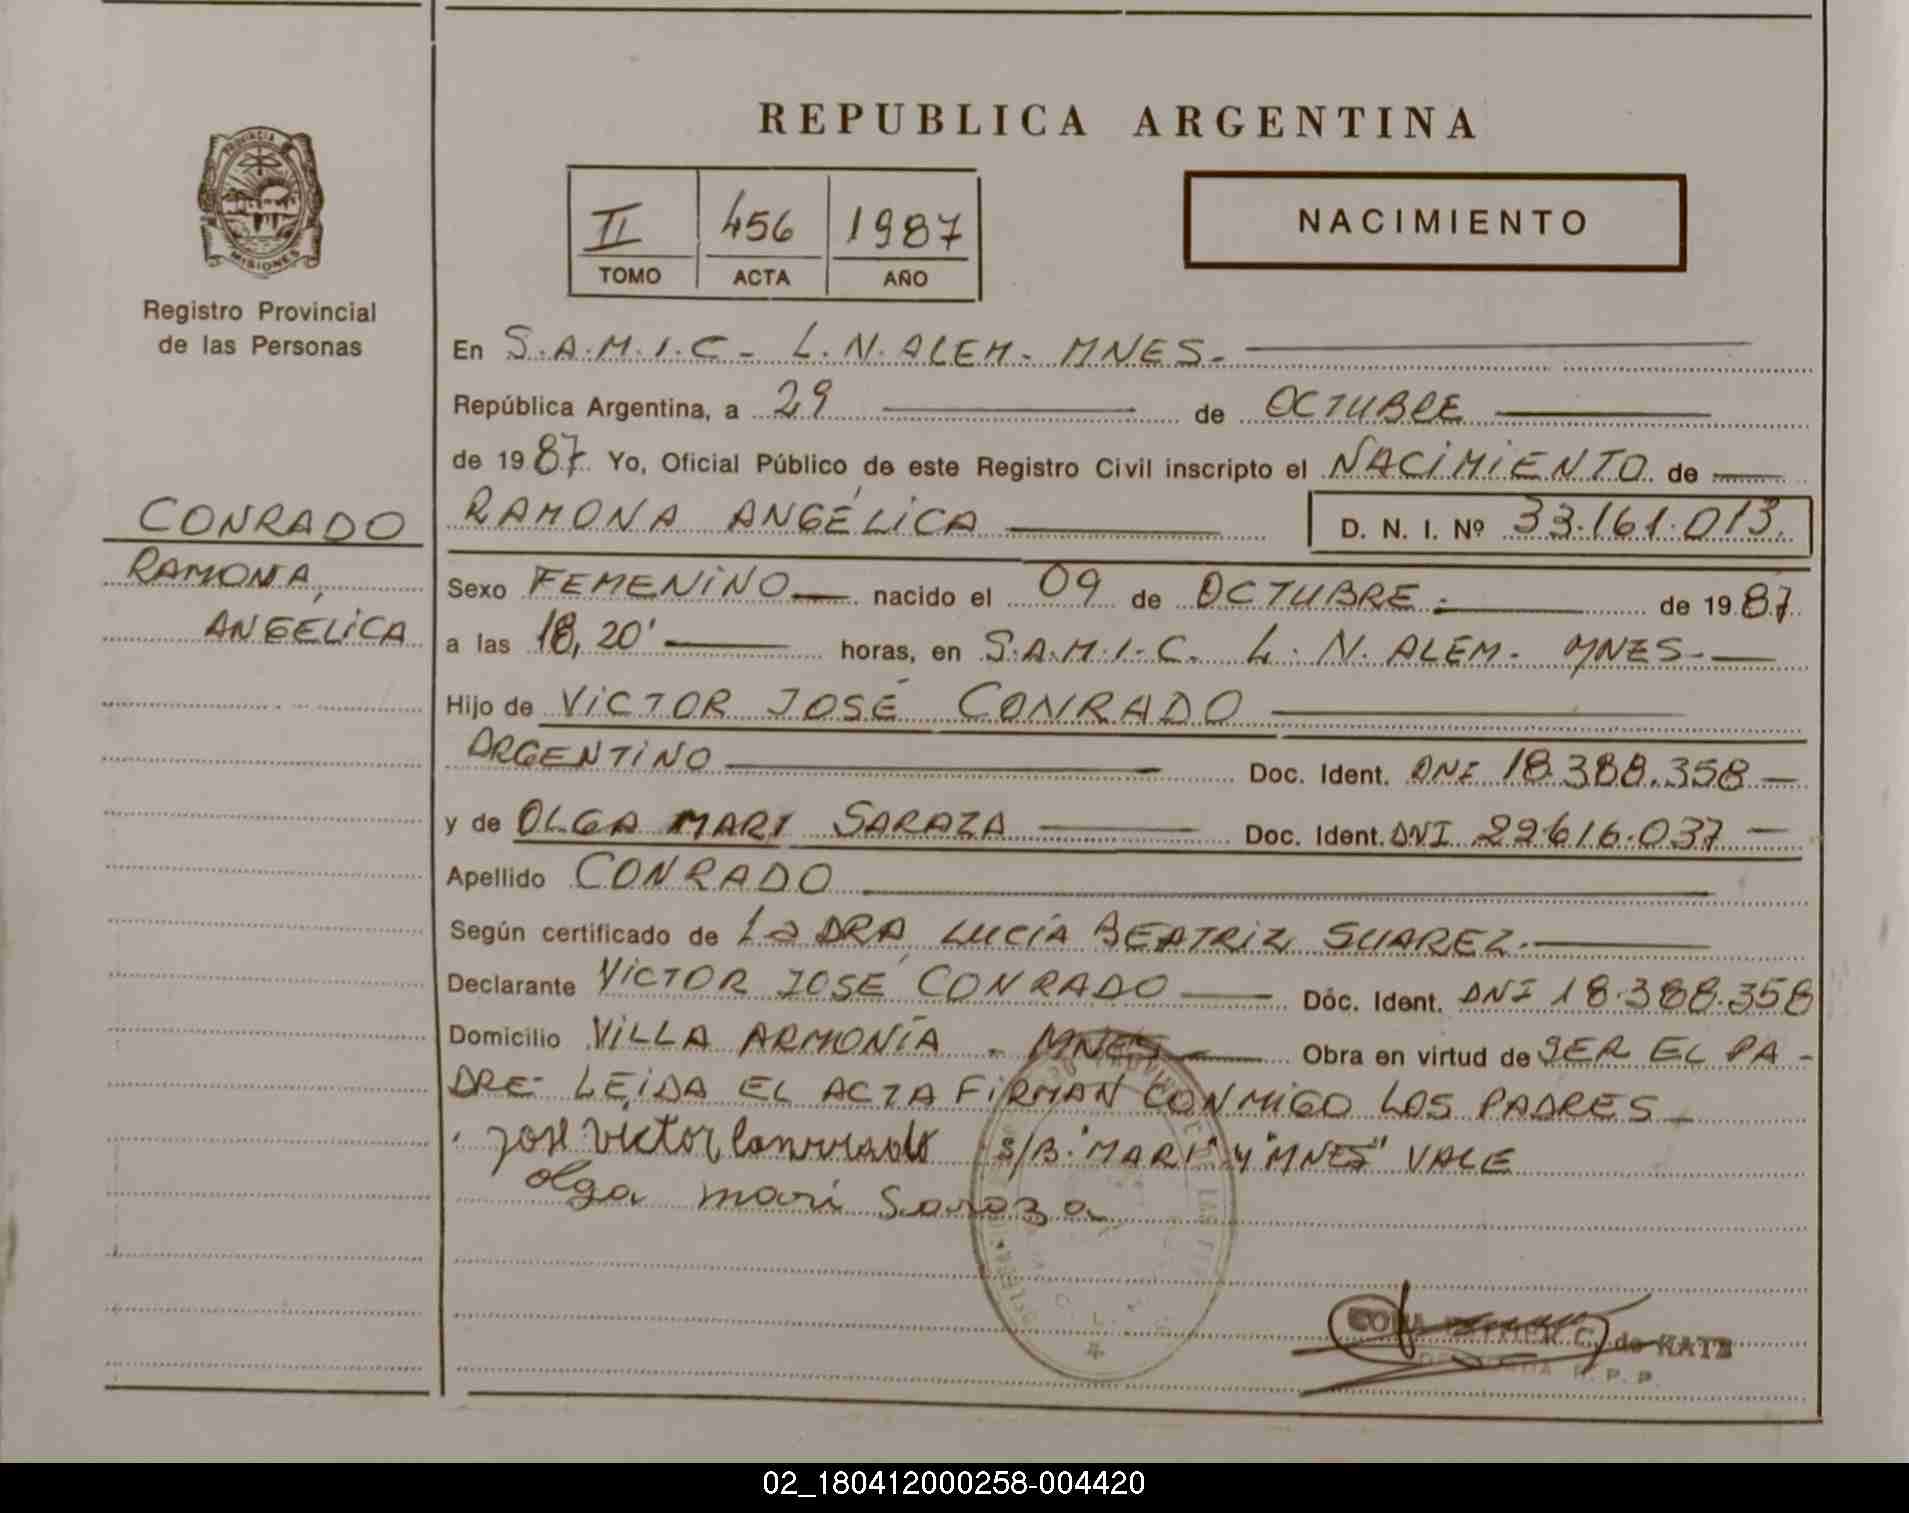 REPUBLICA ARGENTINA
PROVINCIA DE MISIONES
II 456 1987
TOMO ACTA AÑO
NACIMIENTO
Registro Provincial
de las Personas
CONRADO
RAMONA
ANGÉLICA
En S.A.M.I.C - L.N. ALEM - MNES -
República Argentina, a 29 de OCTUBRE
de 1987. Yo, Oficial Público de este Registro Civil inscripto el NACIMIENTO de
RAMONA ANGÉLICA D. N. I. Nº 33.161.013.
Sexo FEMENINO nacido el 09 de OCTUBRE de 1987.
a las 18,20' horas, en S.A.M.I.C. L. N. ALEM - MNES -
Hijo de VICTOR JOSÉ CONRADO
ARGENTINO Doc. Ident. DNI 18.388.358 -
y de OLGA MARI SARAZA Doc. Ident. DNI 22.616.037 -
Apellido CONRADO
Según certificado de La DRA LUCÍA BEATRIZ SUAREZ.
Declarante VICTOR JOSÉ CONRADO Dóc. Ident. DNI 18.388.358
Domicilio VILLA ARMONÍA - MNES Obra en virtud de SER EL PA -
DRE - LEIDA EL ACTA FIRMAN CONMIGO LOS PADRES
José Victor Conrrado S/B. "MARI" y "MNES" VALE
olga mari Saraza
C. de KATZ
R. P. P.
02_180412000258-004420